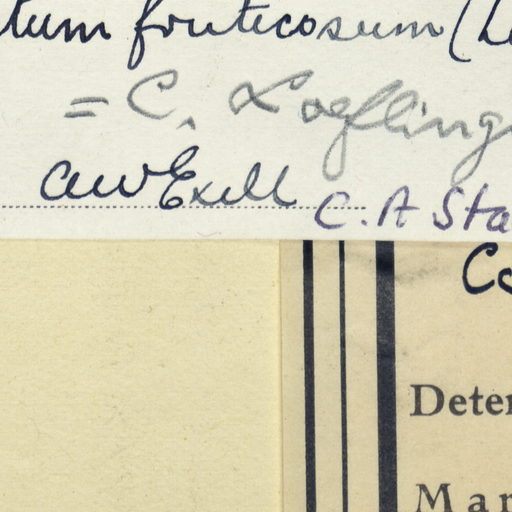 tum fruticosum (L
= C. × Loefling
AWExell C. A Sta
Co
Deter
Mar